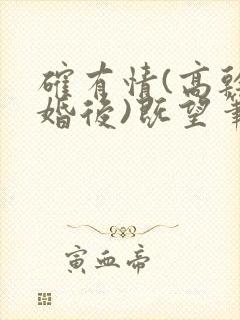 確有情(高
婚後)既望
寅血帝